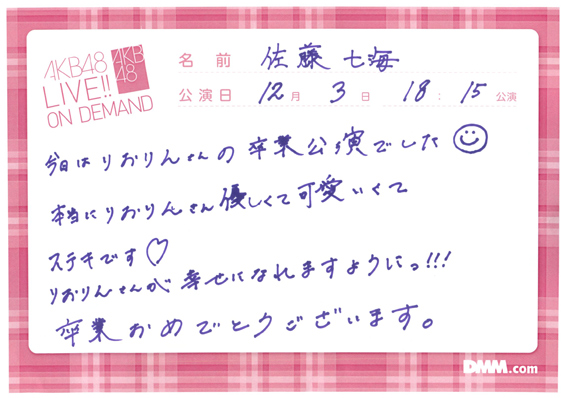 AKB48
LIVE!!
ON DEMAND
AKB
48
名前 佐藤 七海
公演日 12月 3日 18:15公演
今日はりおりんさんの卒業公演でした
本当にりおりんさん優しくて可愛いくて
ステキです♡
りおりんさんが幸せになれますようにっ!!!
卒業おめでとうございます。
DMM.com